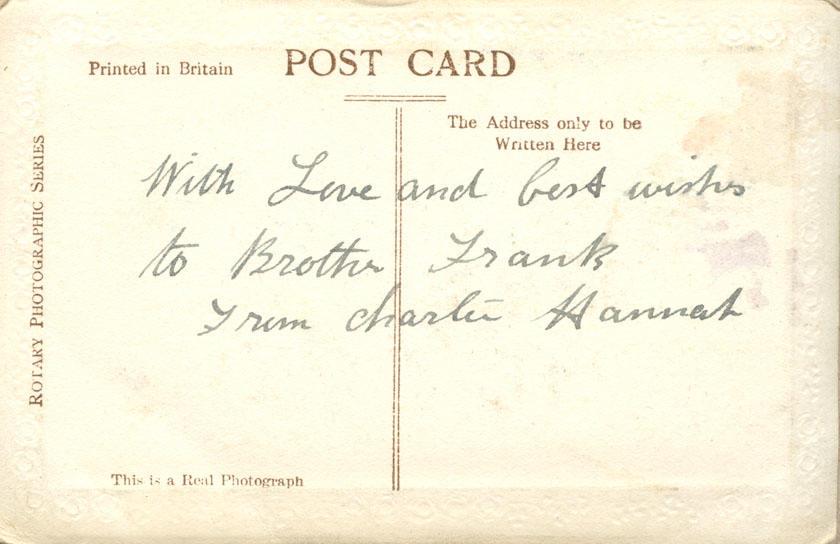 Printed in Britain
POST CARD
The Address only to be
Written Here
ROTARY PHOTOGRAPHIC SERIES
With Love and best wishes
to Brother Frank
From Charlie Hannah
This is a Real Photograph